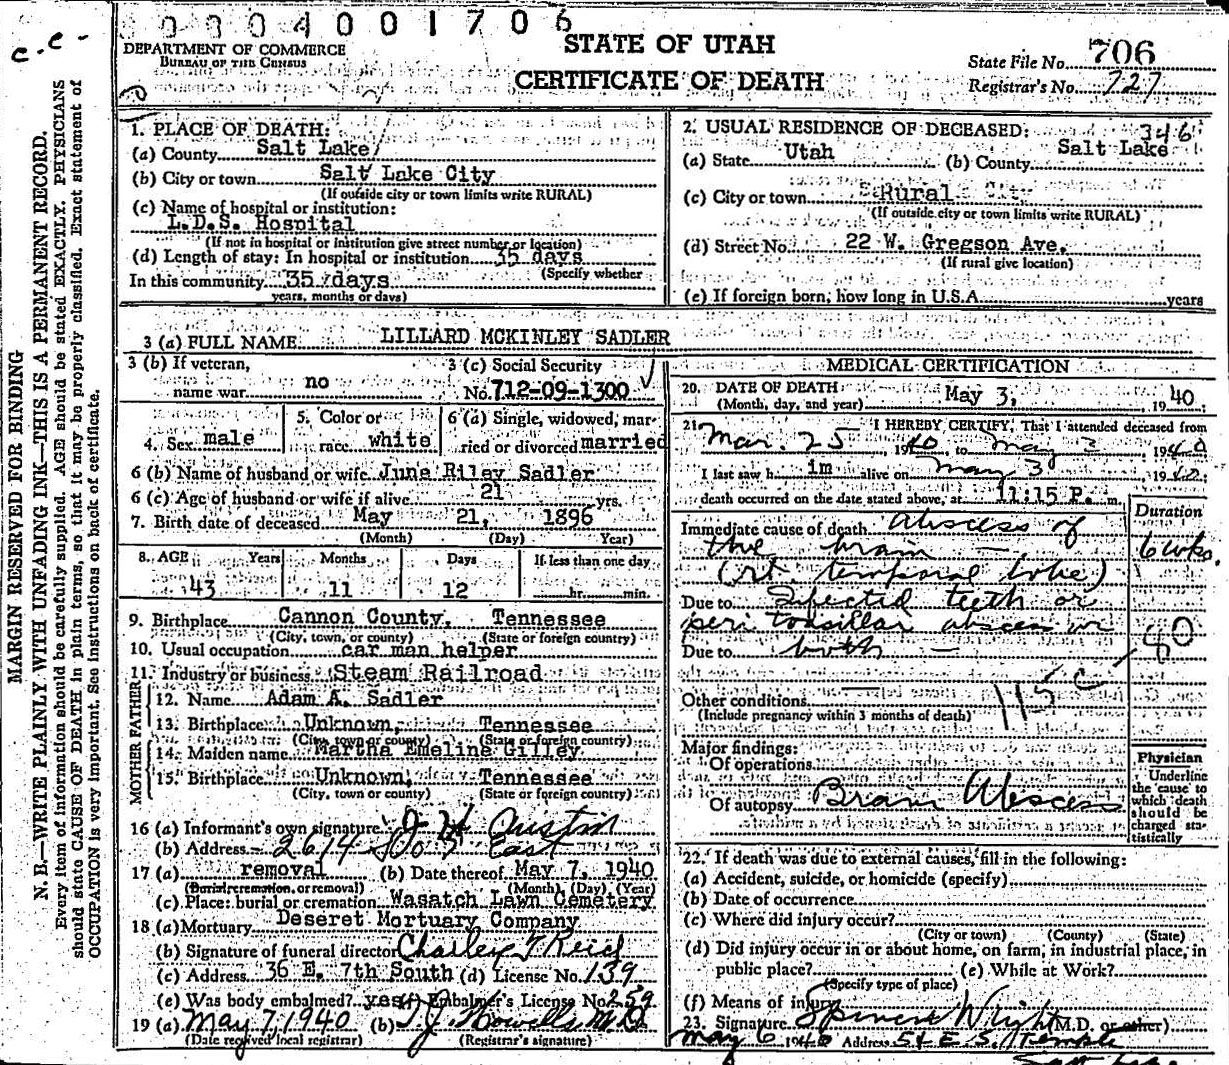 0004001706
c.c-
DEPARTMENT OF COMMERCE
BUREAU OF THE CENSUS
STATE OF UTAH
CERTIFICATE OF DEATH
State File No. 706
Registrar's No. 727
MARGIN RESERVED FOR BINDING
N. B.—WRITE PLAINLY WITH UNFADING INK—THIS IS A PERMANENT RECORD.
Every item of information should be carefully supplied. AGE should be stated EXACTLY. PHYSICIANS
should state CAUSE OF DEATH in plain terms, so that it may be properly classified. Exact statement of
OCCUPATION is very important. See instructions on back of certificate.
1. PLACE OF DEATH:
(a) County Salt Lake
(b) City or town Salt Lake City
(If outside city or town limits write RURAL)
(c) Name of hospital or institution:
L.D.S. Hospital
(If not in hospital or institution give street number or location)
(d) Length of stay: In hospital or institution 35 days
(Specify whether
In this community 35 days
years, months or days)
2. USUAL RESIDENCE OF DECEASED: 346
(a) State Utah (b) County Salt Lake
(c) City or town Rural
(If outside city or town limits write RURAL)
(d) Street No. 22 W. Gregson Ave.
(If rural give location)
(e) If foreign born, how long in U.S.A. years
3 (a) FULL NAME LILLARD MCKINLEY SADLER
3 (b) If veteran,
name war no
3 (c) Social Security
No. 712-09-1300
4. Sex male
5. Color or
race white
6 (a) Single, widowed, mar-
ried or divorced married
6 (b) Name of husband or wife June Riley Sadler
6 (c) Age of husband or wife if alive 21 yrs.
7. Birth date of deceased May 21, 1896
(Month) (Day) Year)
8. AGE Years Months Days If less than one day
43 11 12 hr. min.
9. Birthplace Cannon County, Tennessee
(City, town, or county) (State or foreign country)
10. Usual occupation car man helper
11. Industry or business Steam Railroad
FATHER
12. Name Adam A. Sadler
13. Birthplace Unknown, Tennessee
(City, town or county) (State or foreign country)
MOTHER
14. Maiden name Martha Emeline Gilley
15. Birthplace Unknown, Tennessee
(City, town or county) (State or foreign country)
16 (a) Informant's own signature J H Austin
(b) Address 2614 So 5 East
17 (a) removal (b) Date thereof May 7, 1940
(Burial, cremation, or removal) (Month) (Day) (Year)
(c) Place: burial or cremation Wasatch Lawn Cemetery
18 (a) Mortuary Deseret Mortuary Company
(b) Signature of funeral director Charley T Reid
(c) Address 36 E. 7th South (d) License No. 139
(e) Was body embalmed? yes (f) Embalmer's License No. 259
19 (a) May 7, 1940 (b) T J Howells MD
(Date received local registrar) (Registrar's signature)
MEDICAL CERTIFICATION
20. DATE OF DEATH:
(Month, day, and year) May 3, 1940
21. I HEREBY CERTIFY, That I attended deceased from
Mar. 25 1940, to May 3 1940
I last saw h im alive on May 3 1940
death occurred on the date stated above, at 11:15 P. m.
Duration
Immediate cause of death abscess of
the brain — 6 wks.
(rt. temporal lobe)
Due to Infected teeth or
peri tonsillar abscess or
Due to both —
40
115 c
Other conditions
(Include pregnancy within 3 months of death)
Major findings:
Of operations
Of autopsy Brain Abscess
Physician
Underline
the cause to
which death
should be
charged sta-
tistically
22. If death was due to external causes, fill in the following:
(a) Accident, suicide, or homicide (specify)
(b) Date of occurrence
(c) Where did injury occur?
(City or town) (County) (State)
(d) Did injury occur in or about home, on farm, in industrial place, in
public place? (e) While at Work?
(Specify type of place)
(f) Means of injury
23. Signature Spencer Wright (M.D. or other)
May 6 1940 Address 54 E. S. Temple
Salt Lake